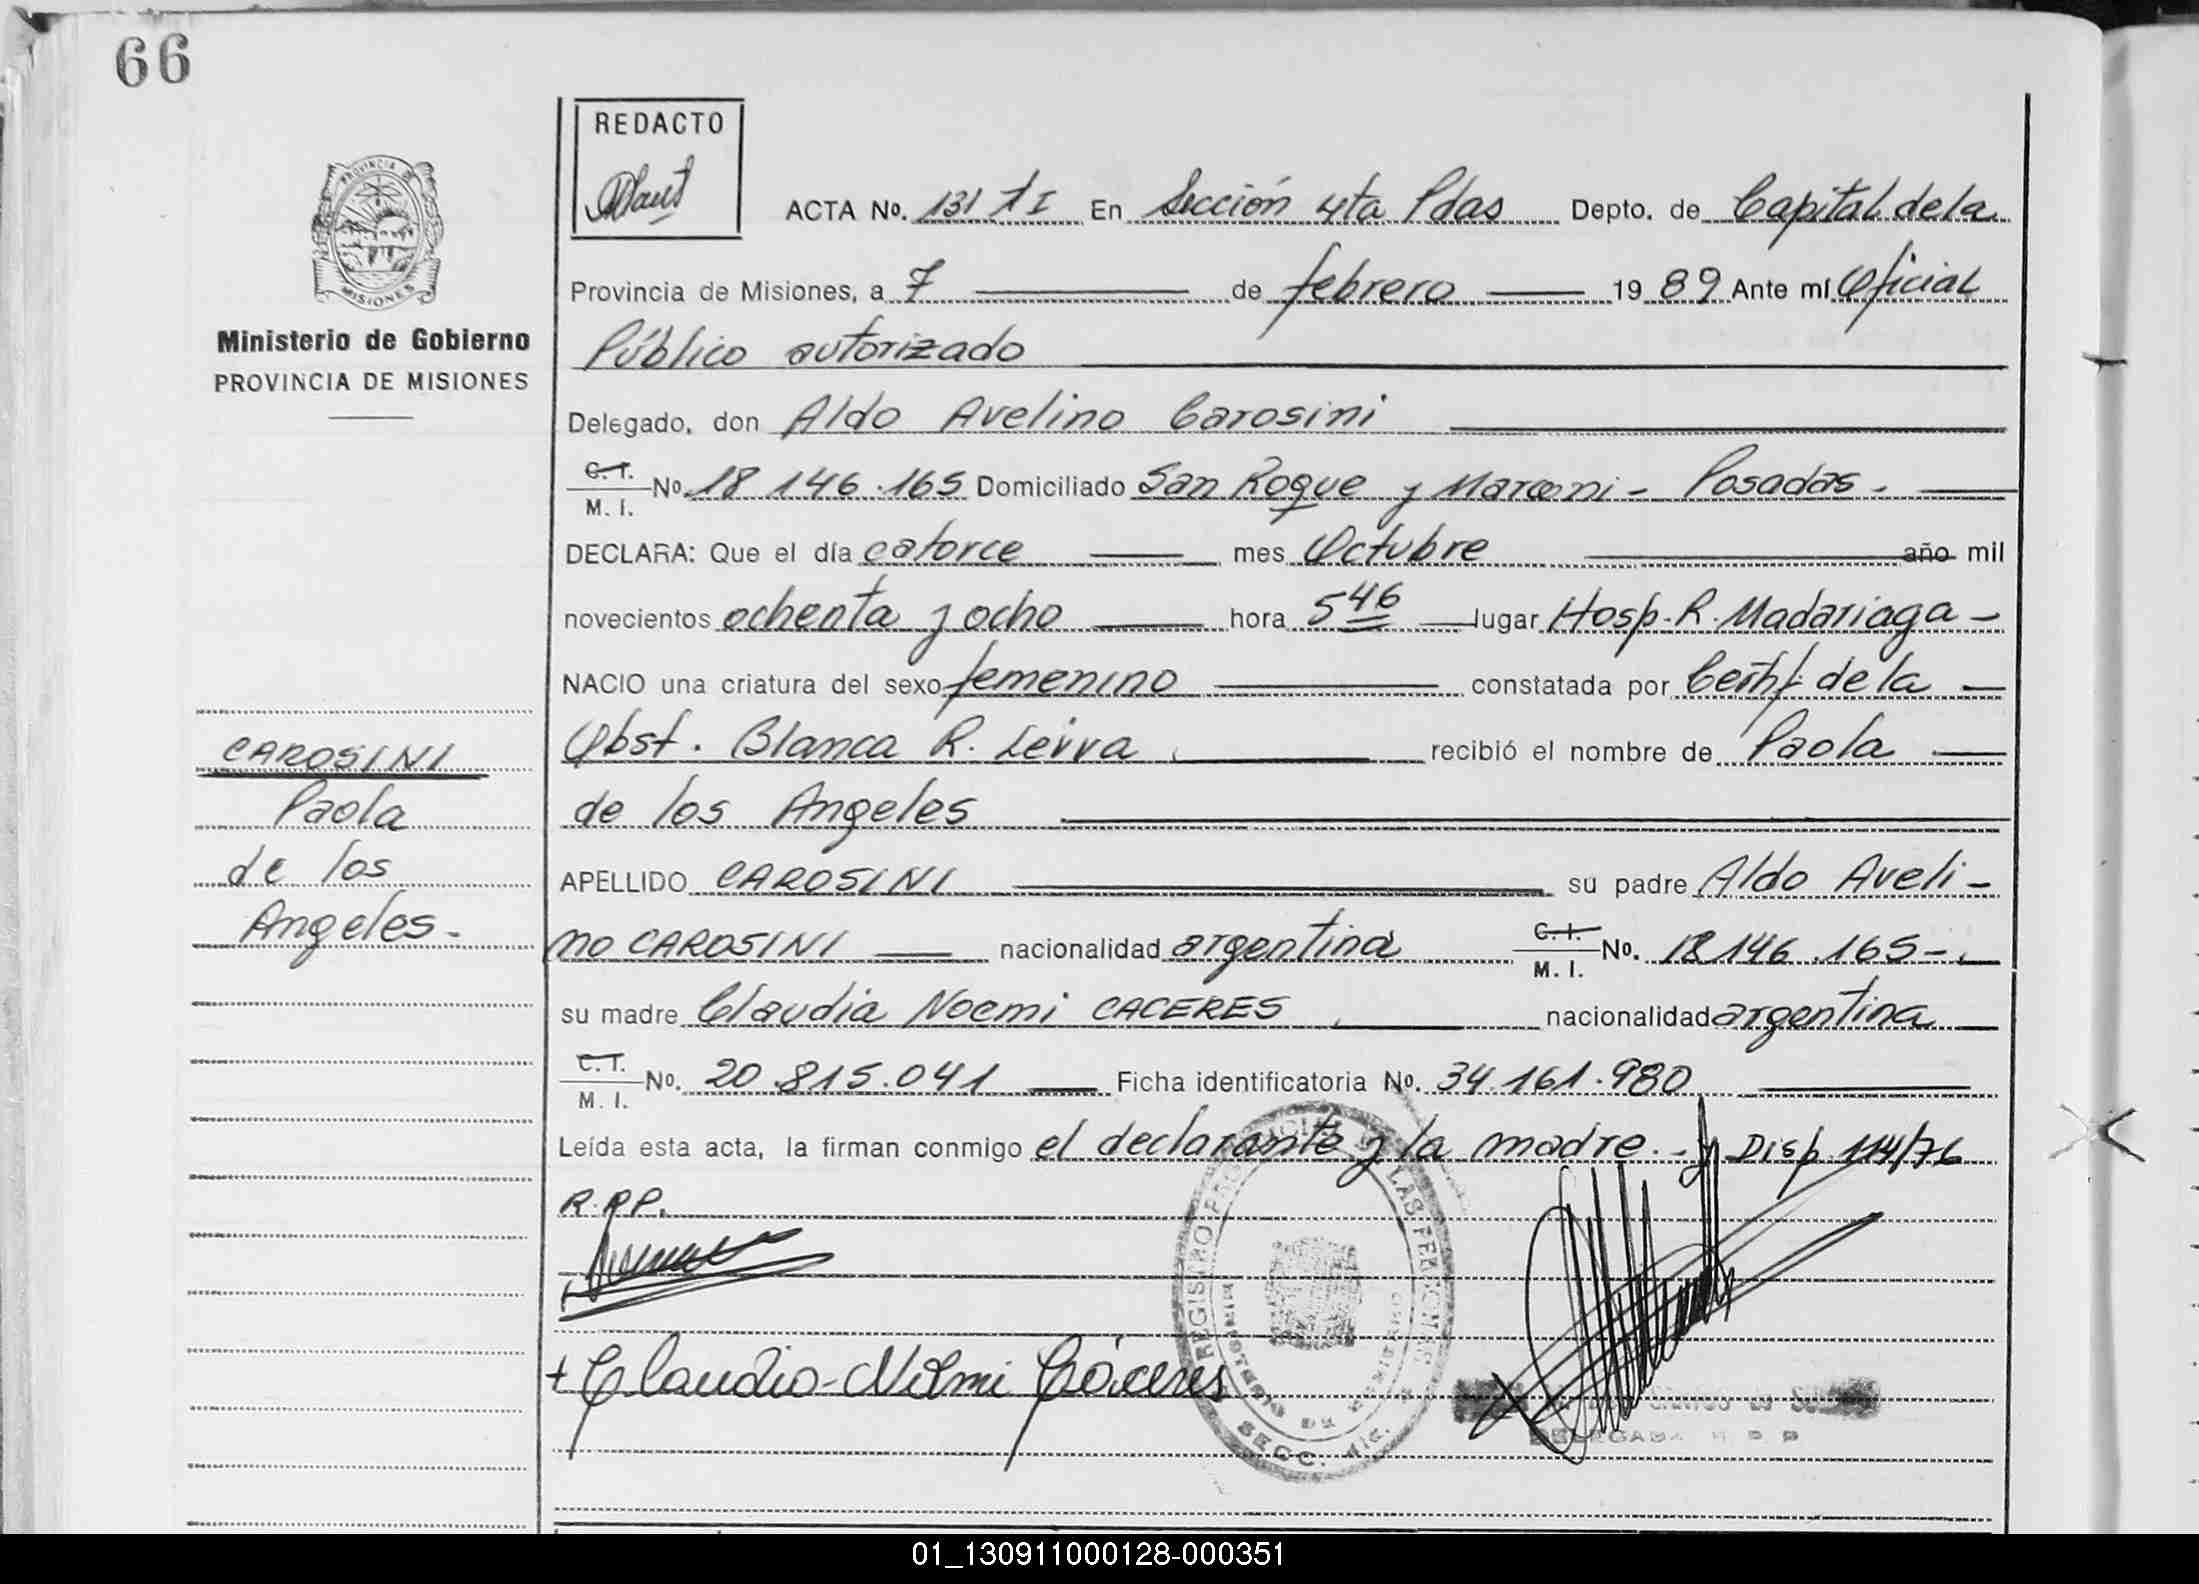 66
REDACTO
PROVINCIA DE
MISIONES
Ministerio de Gobierno
PROVINCIA DE MISIONES
ACTA No. 131 T I En Sección 4ta Pdas Depto. de Capital de la
Provincia de Misiones, a 7 de febrero 1989 Ante mí Oficial
Público autorizado
Delegado, don Aldo Avelino Carosini
C.I. M. I. No. 18 146.165 Domiciliado San Roque y Marconi - Posadas -
DECLARA: Que el día catorce mes Octubre año mil
novecientos ochenta y ocho hora 5 46 lugar Hosp. R. Madariaga -
NACIO una criatura del sexo femenino constatada por Certif. de la
Obst. Blanca R. Leiva recibió el nombre de Paola
de los Angeles
APELLIDO CAROSINI su padre Aldo Aveli-
no CAROSINI nacionalidad argentina C.I. M. I. No. 18 146.165-
su madre Claudia Noemi CACERES nacionalidad argentina
C.I. M. I. No. 20.815.041 Ficha identificatoria No. 34.161.980
Leída esta acta, la firman conmigo el declarante y la madre.- y Disp. 114/76
R.P.P.
CAROSINI
Paola
de los
Angeles-
+ Claudia Noemi Cáceres
REGISTRO LAS PERSONAS
MINISTERIO DE
SECC.
DELEGADA R P P
01_130911000128-000351